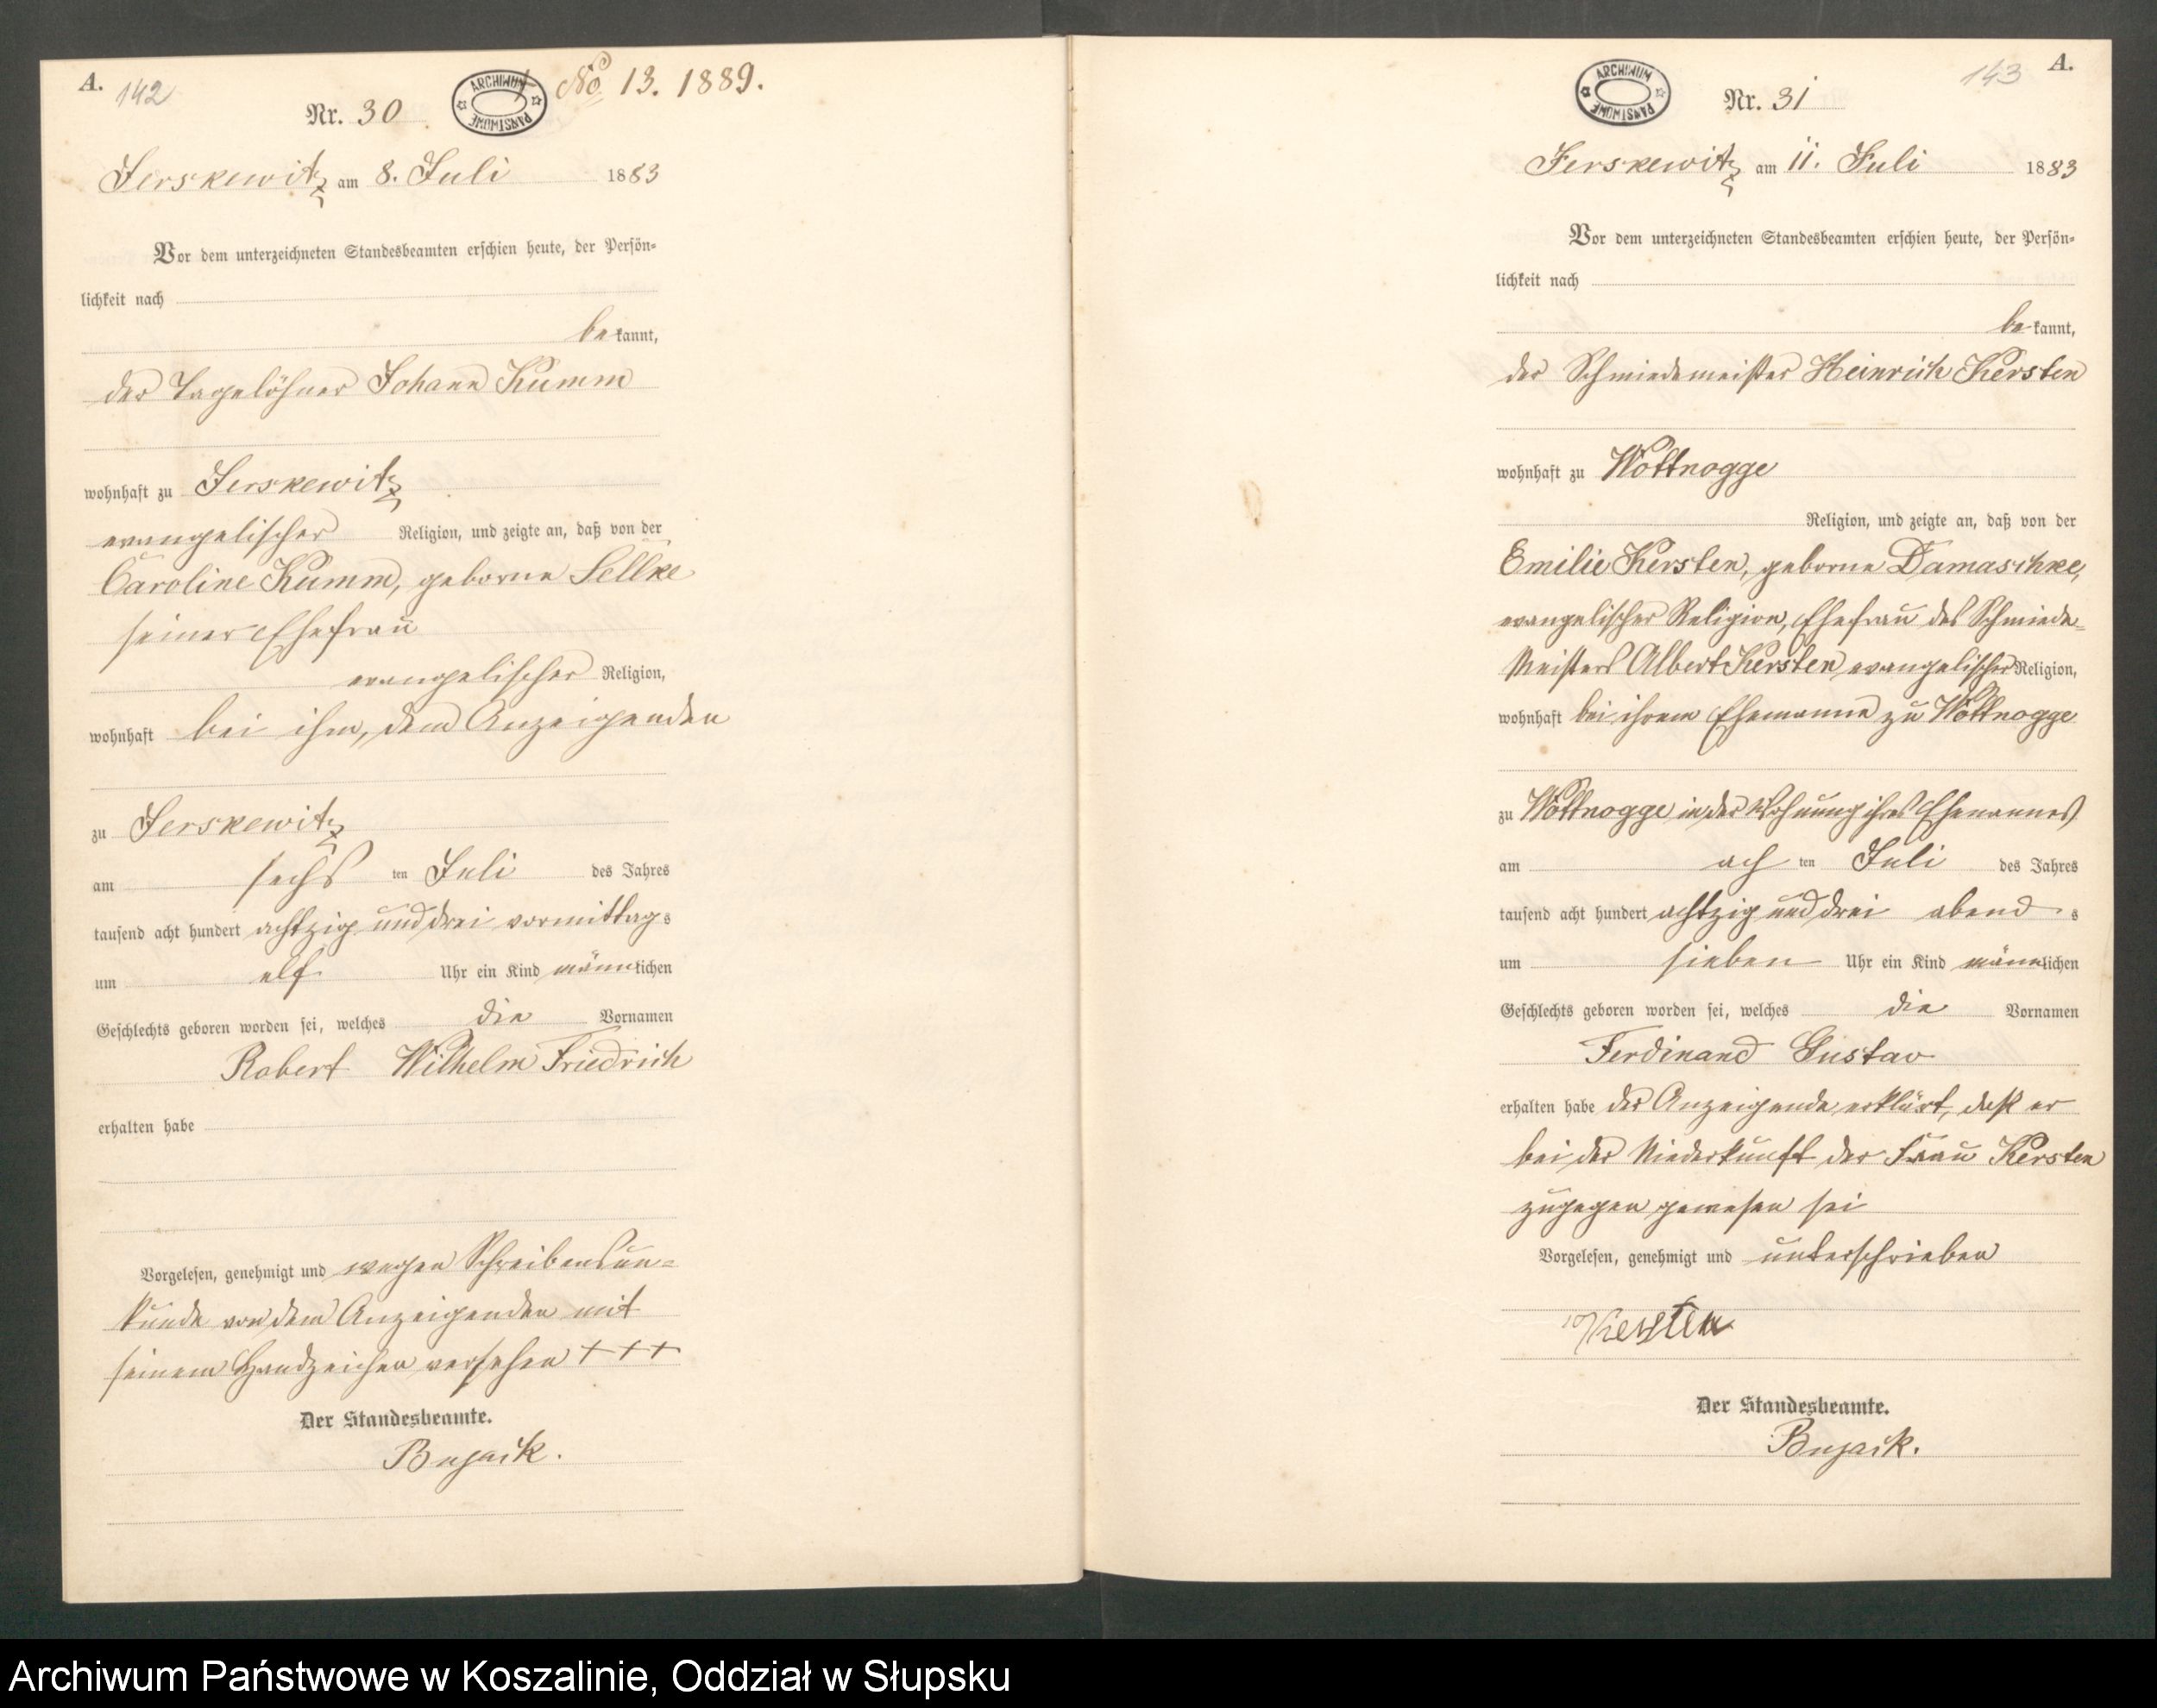 A. 142
ARCHIWUM PAŃSTWOWE
No 13. 1889.
Nr. 30
Jerskewitz am 8. Juli 1883
Vor dem unterzeichneten Standesbeamten erschien heute, der Persön-
lichkeit nach
be kannt,
der Tagelöhner Johann Kumm
wohnhaft zu Jerskewitz
evangelischer Religion, und zeigte an, daß von der
Caroline Kumm, geborne Sellke
seiner Ehefrau
evangelischer Religion,
wohnhaft bei ihm, dem Anzeigenden
zu Jerskewitz
am sechs ten Juli des Jahres
tausend acht hundert achtzig und drei vormittag s
um elf Uhr ein Kind männlichen
Geschlechts geboren worden sei, welches die Vornamen
Robert Wilhelm Friedrich
erhalten habe
Vorgelesen, genehmigt und wegen Schreibensun-
kunde von dem Anzeigenden mit
seinem Handzeichen versehen + + +
Der Standesbeamte.
Bujack.
143 A.
ARCHIWUM PAŃSTWOWE
Nr. 31
Jerskewitz am 11. Juli 1883
Vor dem unterzeichneten Standesbeamten erschien heute, der Persön-
lichkeit nach
be kannt,
der Schmiedemeister Heinrich Kersten
wohnhaft zu Wottnogge
Religion, und zeigte an, daß von der
Emilie Kersten, geborne Damaschke,
evangelischer Religion, Ehefrau des Schmiede-
Meisters Albert Kersten evangelischer Religion,
wohnhaft bei ihrem Ehemanne zu Wottnogge
zu Wottnogge in der Wohnung ihres Ehemannes
am ach ten Juli des Jahres
tausend acht hundert achtzig und drei abend s
um sieben Uhr ein Kind männlichen
Geschlechts geboren worden sei, welches die Vornamen
Ferdinand Gustav
erhalten habe der Anzeigende erklärt, daß er
bei der Niederkunft der Frau Kersten
zugegen gewesen sei
Vorgelesen, genehmigt und unterschrieben
Kersten
Der Standesbeamte.
Bujack.
Archiwum Państwowe w Koszalinie, Oddział w Słupsku